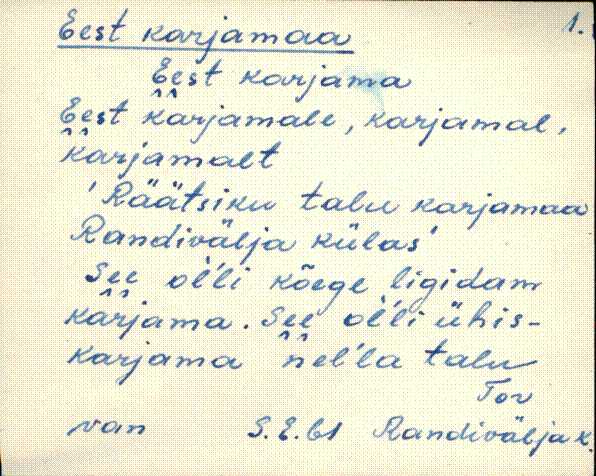 Eest karjamaa 1.
Eest karjama
Eest karjamale, karjamal,
karjamalt
'Räätsiku talu karjamaa
Randivälja külas'
See oĺĺi kõege ligidam
karjama. See oĺĺi ühis-
karjama neĺla talu
Tor
van S.E. 61 Randivälja k.